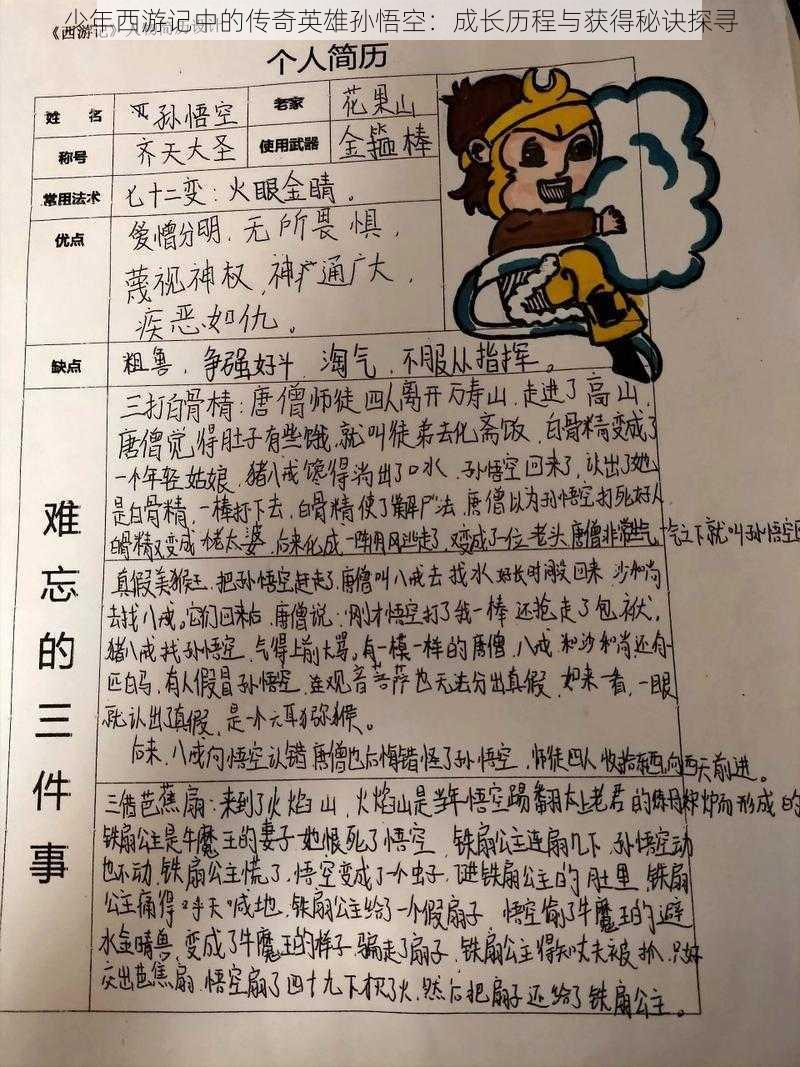 少年西游记中的传奇英雄孙悟空：成长历程与获得秘诀探寻
《西游记》人物简历设计
个人简历
姓 名 孙悟空 老家 花果山
称号 齐天大圣 使用武器 金箍棒
常用法术 七十二变：火眼金睛。
优点 爱憎分明，无所畏惧，
蔑视神权，神广通广大，
疾恶如仇。
缺点 粗鲁，争强好斗，淘气，不服从指挥。
难忘的三件事
三打白骨精：唐僧师徒四人离开万寿山，走进了高山，
唐僧觉得肚子有些饿，就叫徒弟去化斋饭，白骨精变成了
一个年轻姑娘，猪八戒馋得淌出了口水，孙悟空回来了，认出了她
是白骨精，一棒打下去，白骨精使了解尸法，唐僧以为孙悟空打死好人
白骨精又变成老太婆，后来化成一阵阴风逃走了，又变成了一位老头，唐僧非常生气，气之下就叫孙悟空
真假美猴王，把孙悟空赶走了，唐僧叫八戒去找水，好长时间没回来，沙和尚
去找八戒。它们回来后，唐僧说：刚才悟空打了我一棒，还抢走了包袱，
猪八戒找孙悟空，气得上前大骂。有一模一样的唐僧，八戒和沙和尚还有一
匹白马，有人假冒孙悟空，连观音菩萨也无法分出真假，如来一看，一眼
就认出了真假，是一个六耳猕猴。
后来，八戒向悟空认错，唐僧也后悔错怪了孙悟空，师徒四人收拾东西，向西天前进。
三借芭蕉扇：来到了火焰山，火焰山是当年悟空踢翻太上老君的炼丹炉而形成的
铁扇公主是牛魔王的妻子，她恨死了悟空，铁扇公主连扇几下，孙悟空动
也不动，铁扇公主慌了，悟空变成了一个虫子，飞进铁扇公主的肚里，铁扇
公主痛得呼天喊地，铁扇公主给了一个假扇子，悟空偷了牛魔王的避
水金睛兽，变成了牛魔王的样子，骗走了扇子，铁扇公主得知丈夫被抓，只好
交出芭蕉扇，悟空扇了四十九下扑灭了火，然后把扇子还给了铁扇公主。